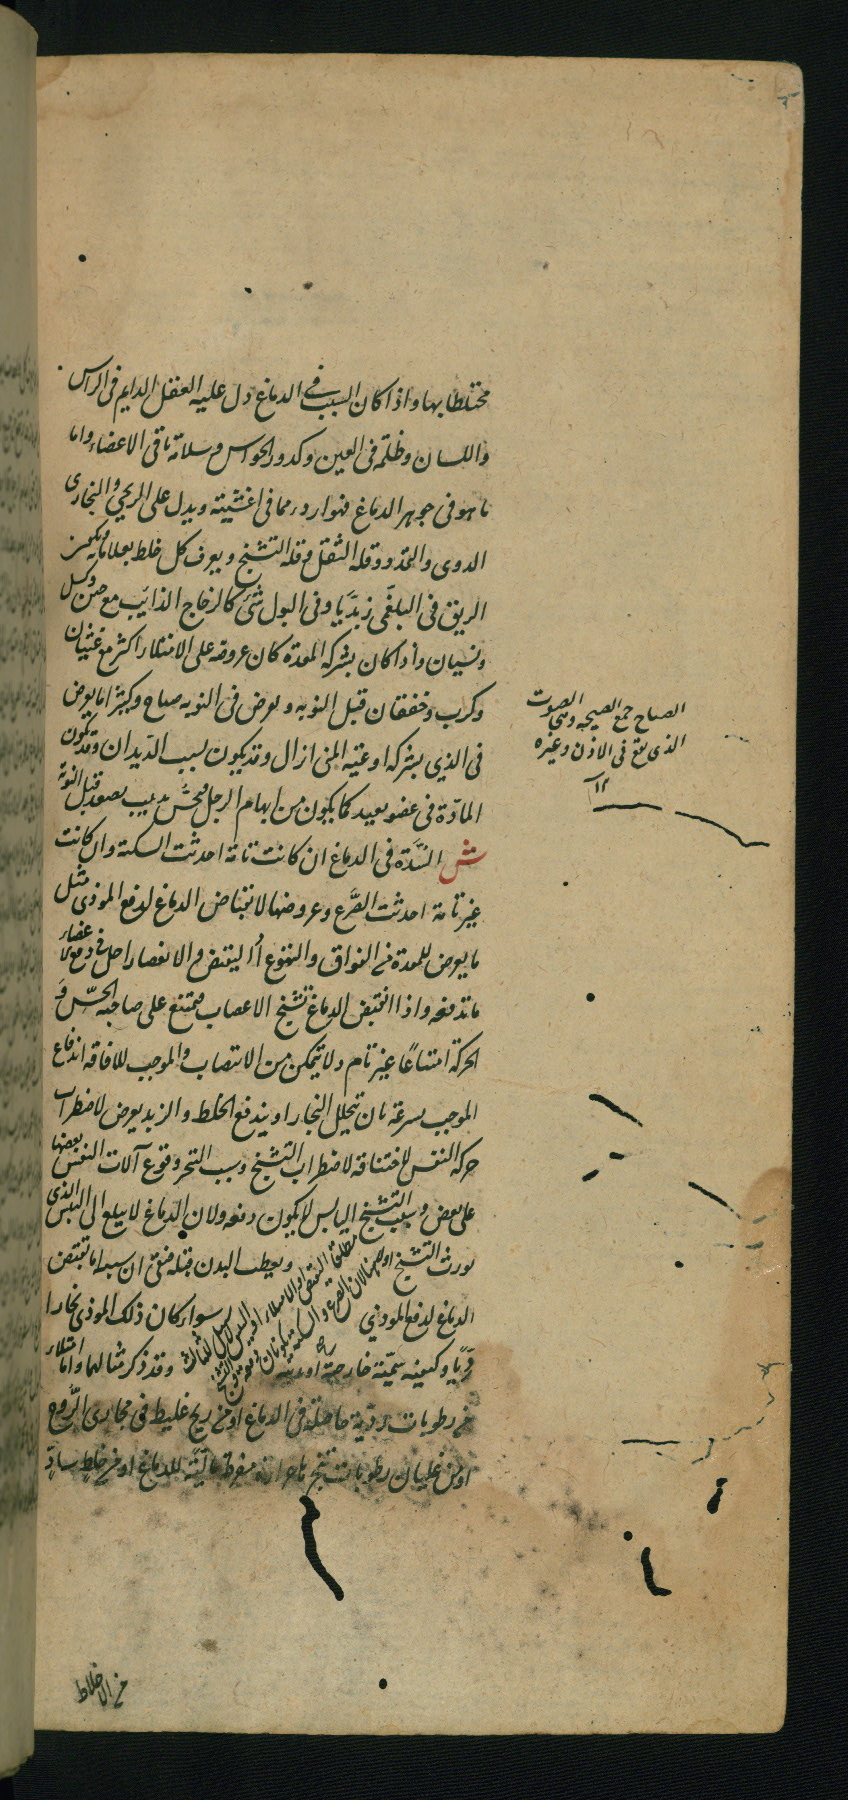 مختلطا بها واذا كان السبب فى الدماغ دل عليه الثقل الدايم فى الراس
واللسان وظلمة فى العين وكدور الحواس وسلامة باقى الاعضاء واما
ما هو فى جوهر الدماغ فهو اردء مما فى اغشيته ويدل على الريحى والبخارى
الدوى والتمدد وقلة الثقل وقلة التشنج ويعرف كل خلط بعلاماته ويكون
الريق فى البلغمى زبديا وفى البول شئ كالزجاج الذايب مع جبن وكسل
ونسيان واذا كان بشركة المعدة كان عروضه على الامتلاء اكثر مع غثيان
وكرب وخفقان قبل النوبه ويعرض فى النوبه صياح وكثيرا ما يعرض
فى الذى بشركة اوعية المنى انزال وقد يكون لسبب الديدان وقد تكون
المادة فى عضو بعيد كما يكون من ابهام الرجل فيحس بدبيب يصعد قبل النوبة
ش السدة فى الدماغ ان كانت تامة احدثت السكتة وان كانت
غير تامة احدثت الصرع وعروضها لانقباض الدماغ لدفع الموذى مثل
ما يعرض للمعدة من الفواق والتهوع اذ التقبض والانعصار اصل فى دفع الاعضاء
ما تدفعه واذا انقبض الدماغ تشنج الاعصاب فيمتنع على صاحبه الحس و
الحركة امتناعا غير تام ولا يتمكن من الانتصاب والموجب للافاقه اندفاع
الموجب بسرعة بان يتحلل البخار او يندفع الخلط والزبد يعرض لاضطراب
حركة النفس لاختناقه لاضطراب التشنج وسبب التحر وقوع آلات النفس بعضها
على بعض وسبب التشنج اليابس لا يكون دفعه ولان الدماغ لا يبلغ الى اليبس الذى
يورث التشنج او ويعطب البدن قبله فبقى ان سببه اما تقبض
الدماغ لدفع الموذى سواء كان ذلك الموذى بخارا
رديا وكيفية سمية خارجة او بدنية وقد ذكر مثالهما واما امتلاء
من رطوبات ردية حاصلة فى الدماغ او من ريح غليظ فى مجارى الروح
او من غليان رطوبات تنج بها حرارة مفرطة للدماغ او من خلط ساد
من الاخلاط
الصياح جمع الصيحه وهى الصوت
الذى يقع فى الاذن وغيره
١٢